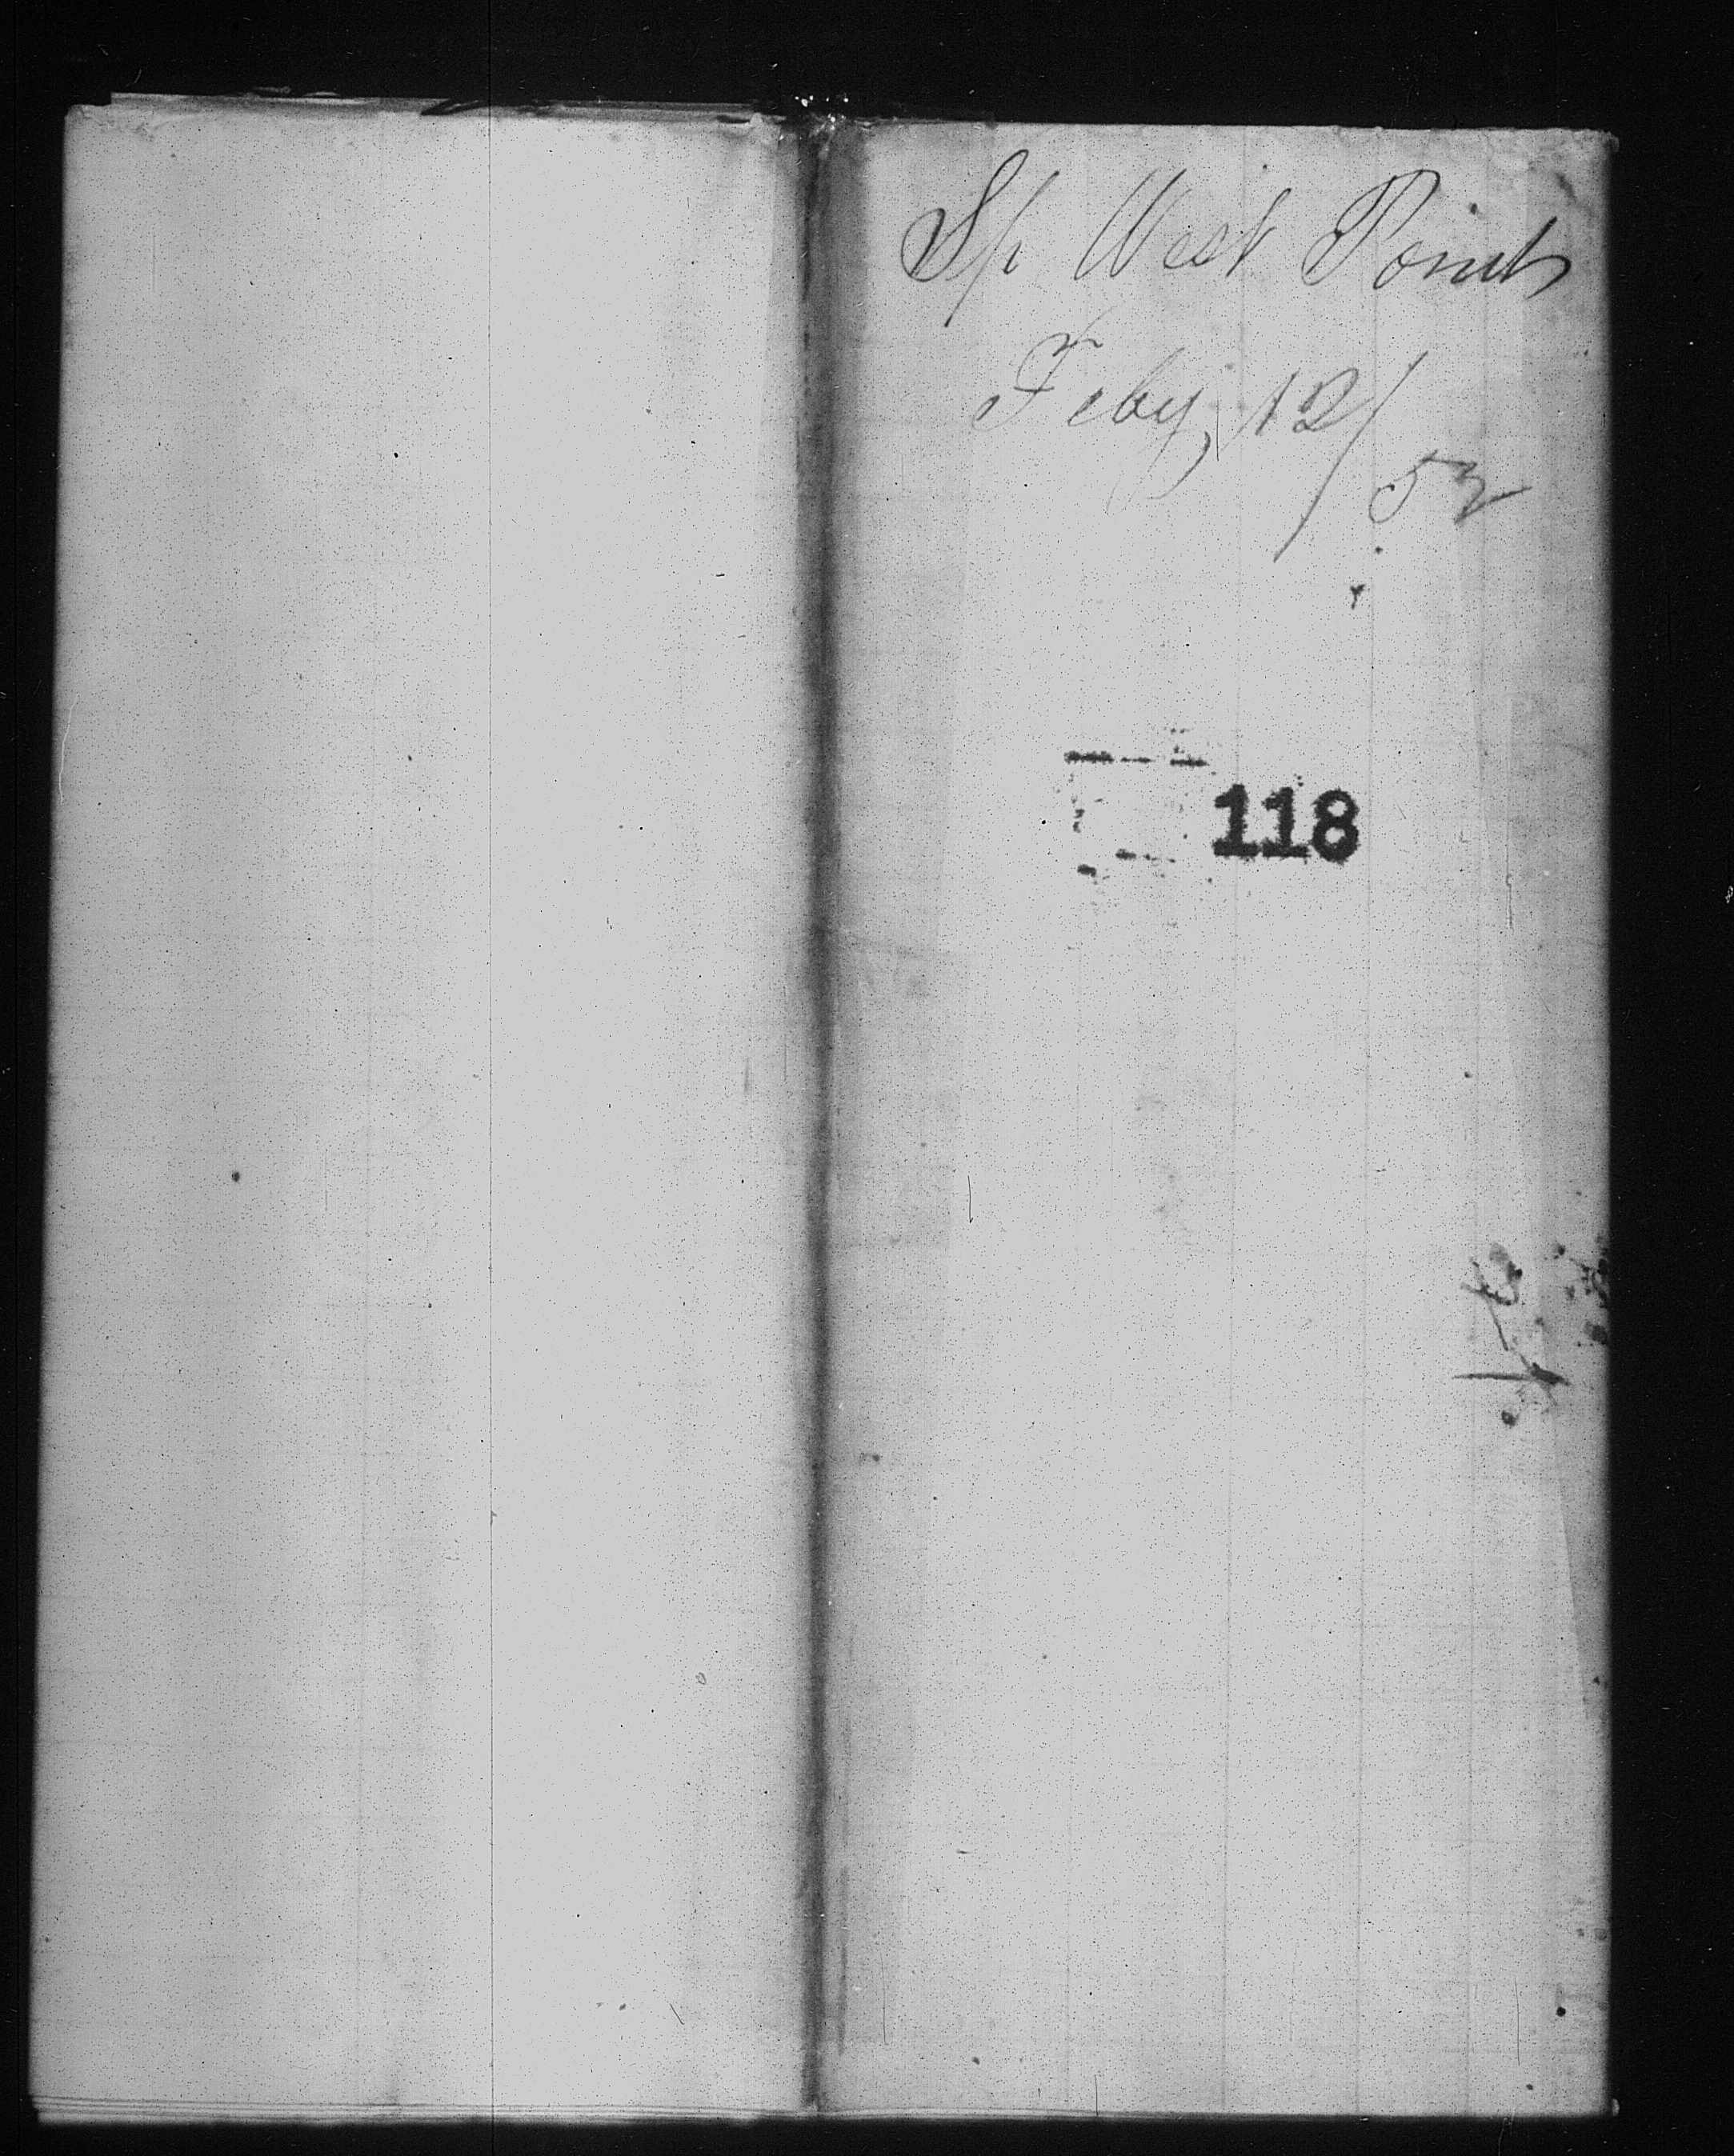 Sp West Point
Feby, 12/
52
118